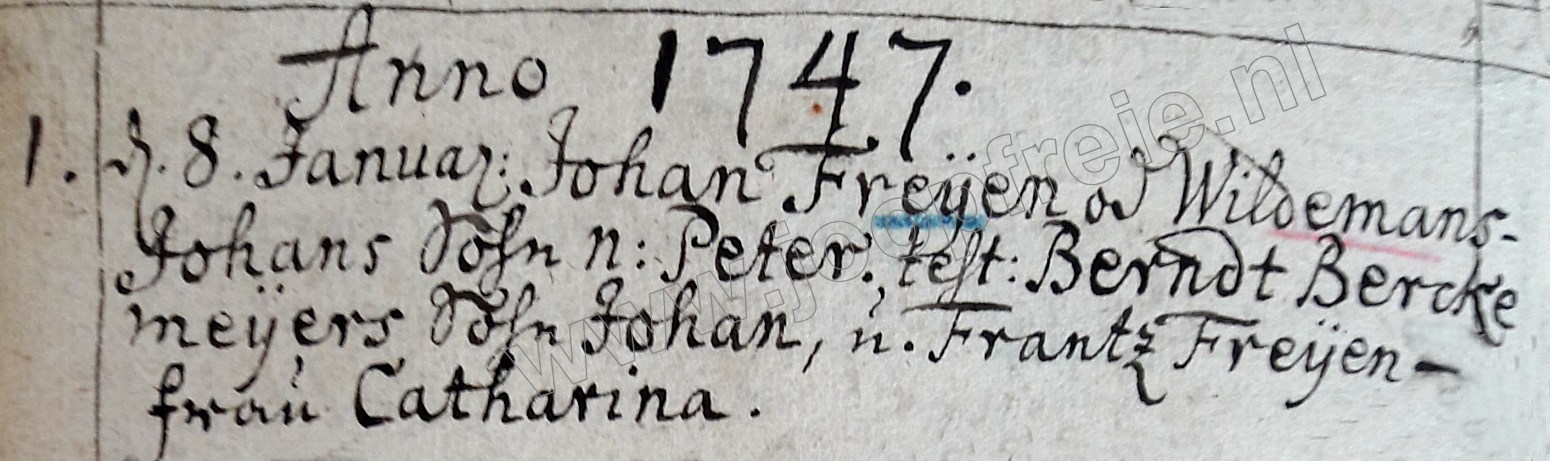 Anno 1747.
1. d. 8. Januar: Johan Freÿen od Wildemans-
Johans Sohn N: Peter, test: Berndt Bercke
meÿers Sohn Johan, ü. Frantz Freÿen-
fraü Catharina.
www.joopfreije.nl